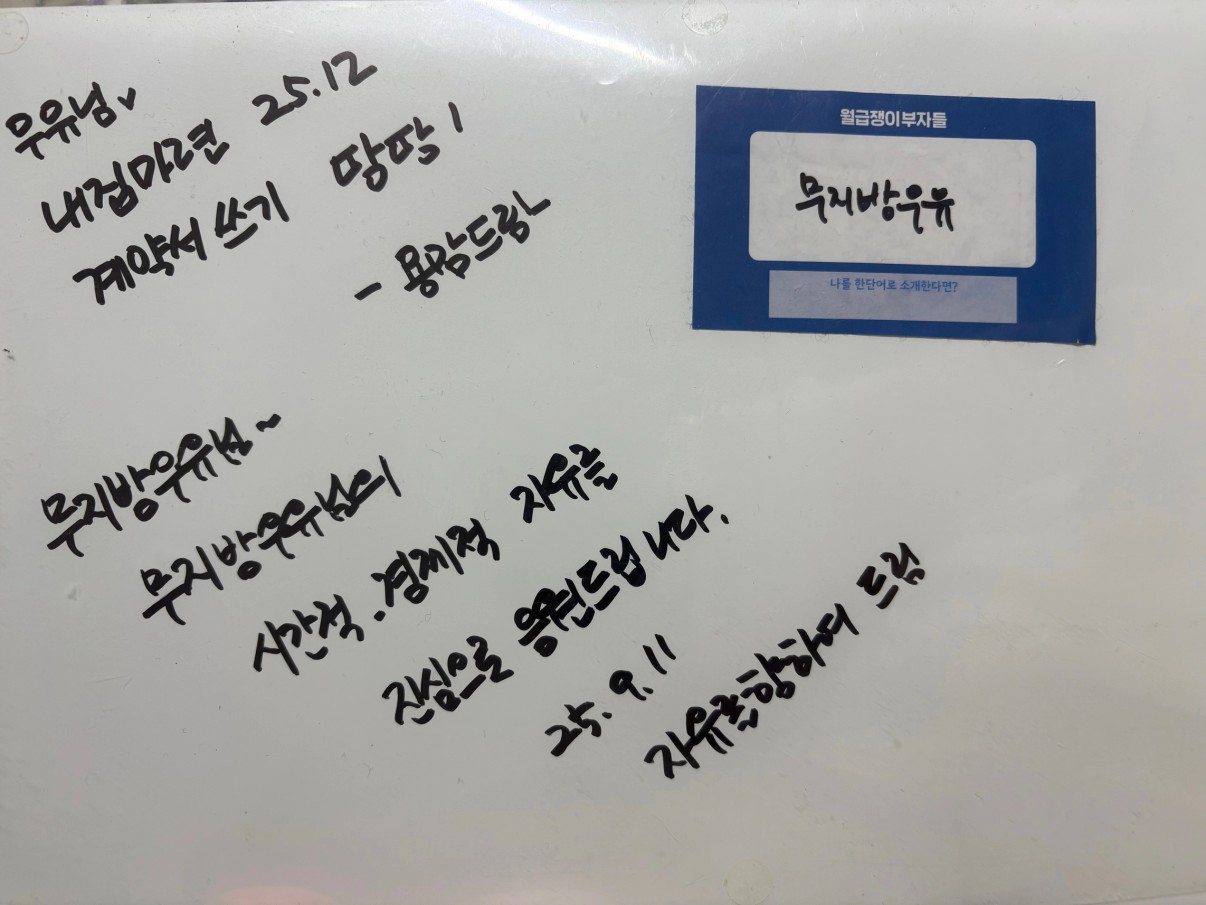 우유님~
내집마련 25.12
계약서 쓰기 땅땅!
- 용감드림 -
월급쟁이부자들
무지방우유
나를 한단어로 소개한다면?
무지방우유님~
무지방우유님의
시간적.경제적 자유를
진심으로 응원드립니다.
25. 9. 11
자유를향하여 드림